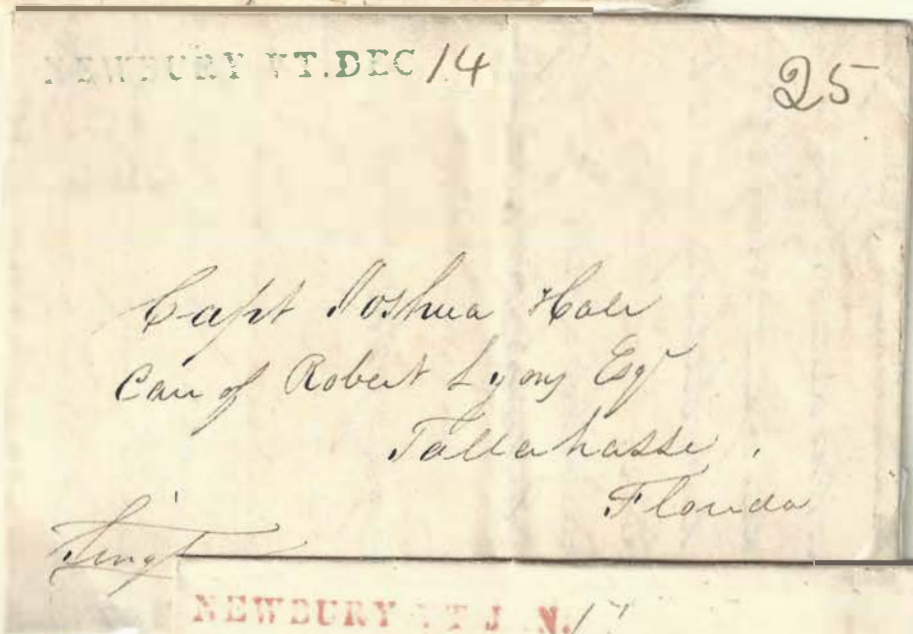 NEWBURY VT. DEC 14
25
Capt Joshua Hale
Care of Robert Lyons Esqr
Tallahasse,
Florida
NEWBURY VT J N.